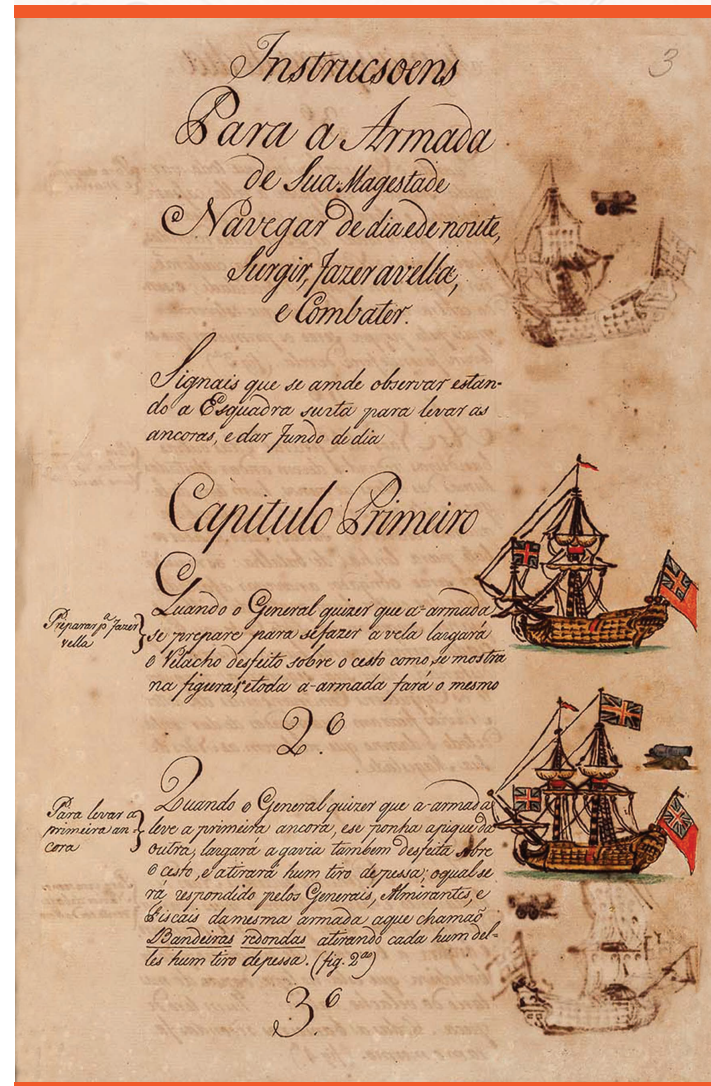 3
Instrucsoens
Para a Armada
de Sua Magestade
Navegar de dia e de noute,
Surgir, fazer a vella,
e Combater.
Signais que se amde observar estan-
do a Esquadra surta para levar as
ancoras, e dar fundo de dia
Capitulo Primeiro
Preparar pª fazer
vella
Quando o General quizer que a armada
se prepare para se fazer a vela largará
o Velacho desfeito sobre o cesto como se mostra
na figura; e toda a armada fará o mesmo
2.º
Para levar a
primeira an
cora
Quando o General quizer que a armada
leve a primeira ancora, e se ponha a pique da
outra, largara a gavia tambem desfeita sobre
o cesto, e atirará hum tiro de pessa; o qual se
rá respondido pelos Generais, Almirantes, e
Fiscais da mesma armada a que chamaõ
Bandeiras redondas atirando cada hum del-
les hum tiro de pessa. (fig. 2ª)
3.º